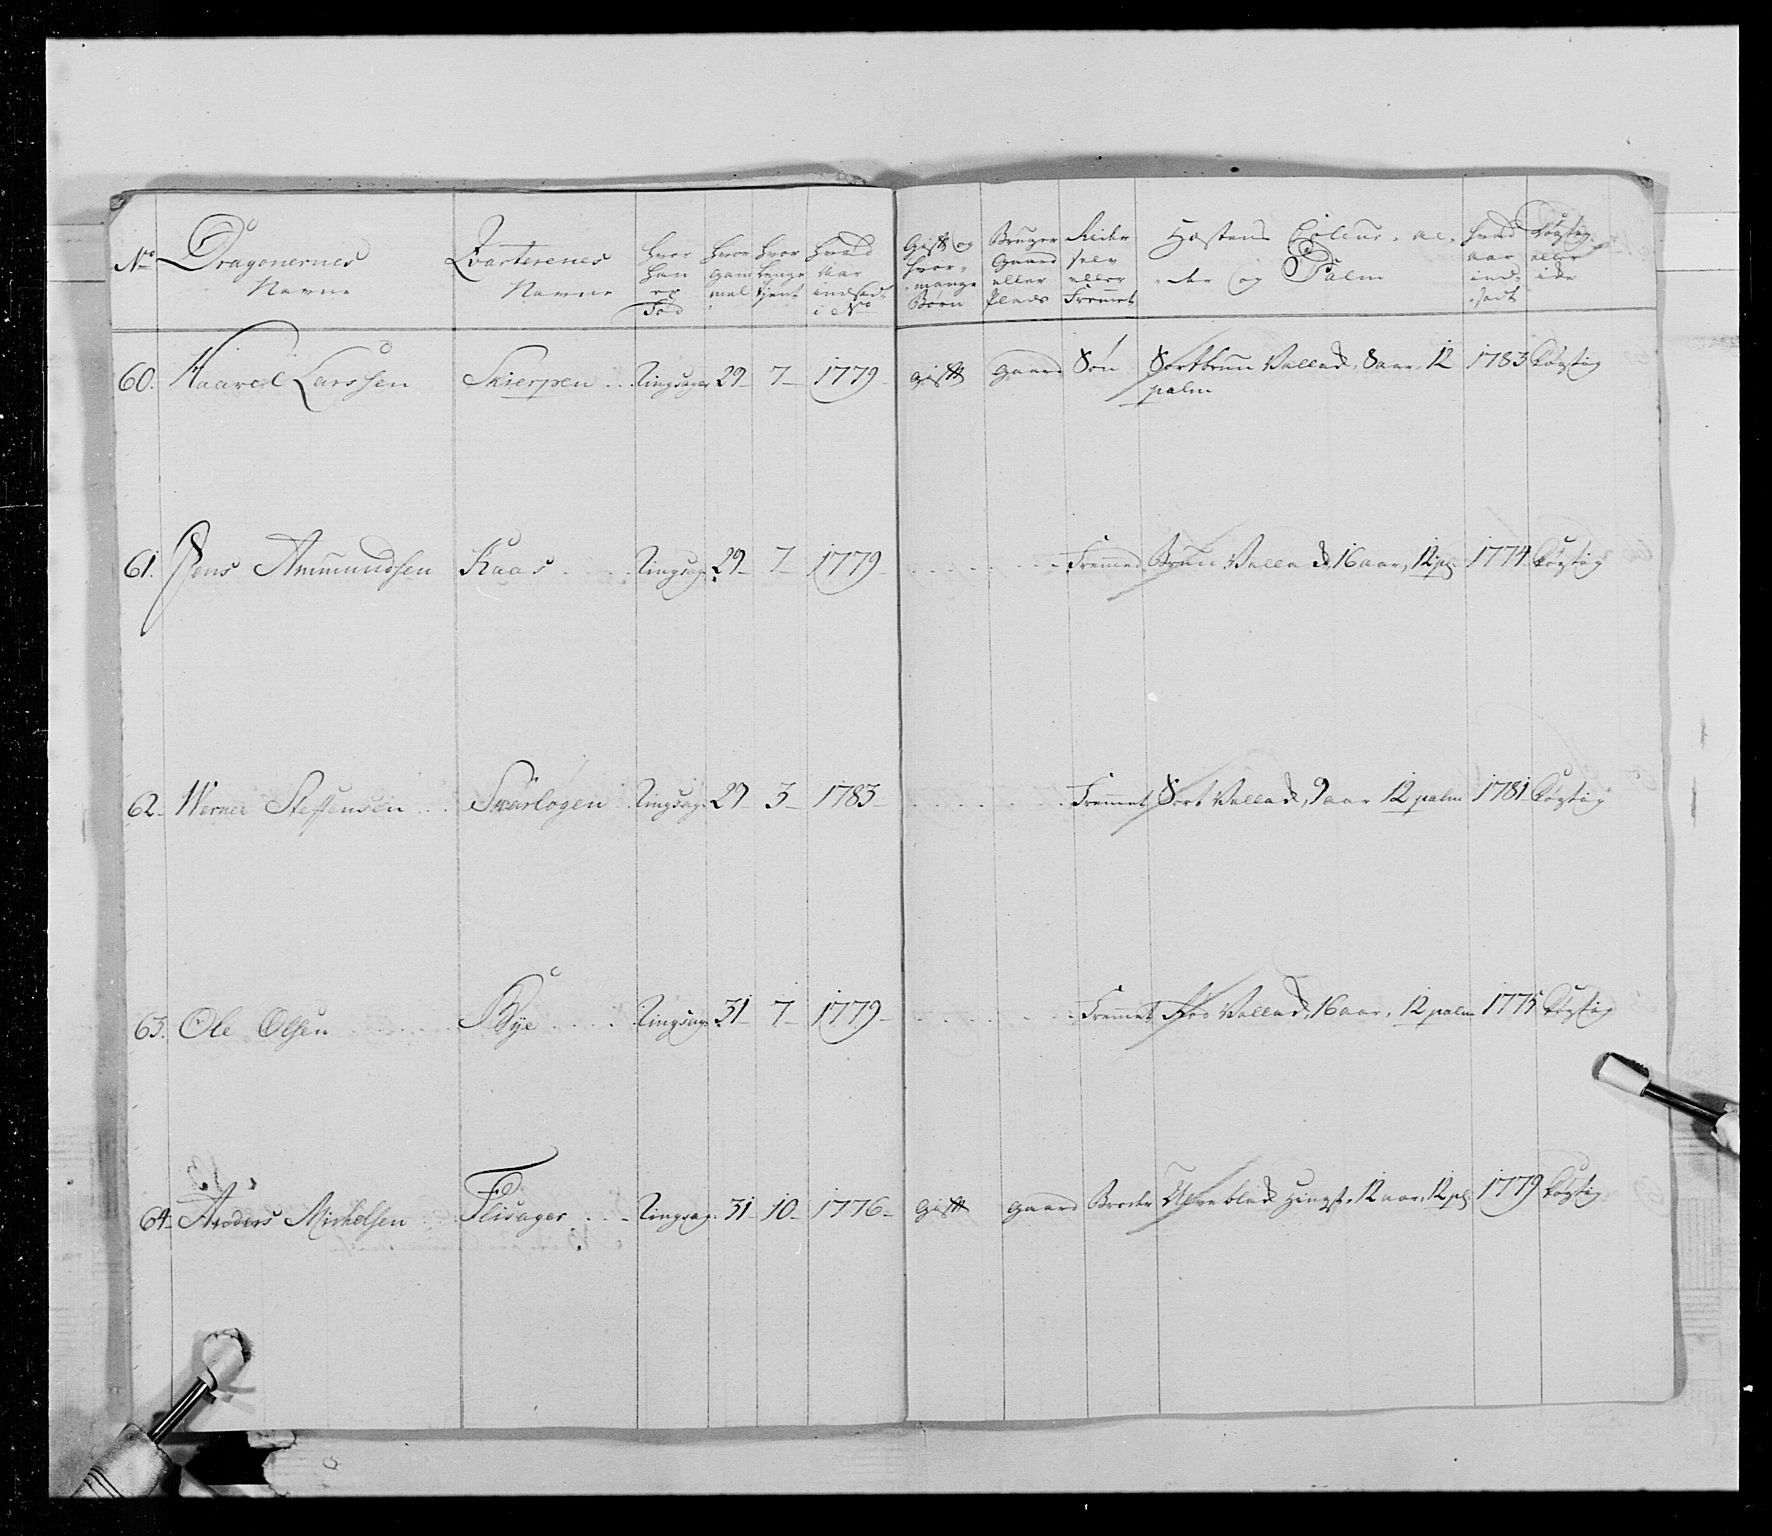 No Dragonernes Navne
Qvarterenes Navne
Hvor han er Fød
Hvor gam mel
Hvor Længe tient
Hvad Aar indsadt i No
Gift og hvor mange Børn
Bruger Gaard eller Plads
Reider selv eller Fremet
Hæstens Coleur, al- der og Palm
Hvad aar ind- sadt
Døgtig eller ikke
60. Haavel Larssen Skierpen Ringsager 29 7 1779 gift Gaard Søn Sortbrun Vallack, 8 aar, 12 1783 Døgtig
palm
61. Jens Ammundsen Kaas Ringsag: 29 7 1779 Fremed Brun Vallack, 16 aar, 12 pl: 1774 Døgtig
62. Werner Steffensen Svarløgen Ringsag: 29 3 1783 Fremmet Sort Vallack, 9 aar 12 palm 1781 Døgtig
63. Ole Olsen Bye Ringsager 31 7 1779 Fremmet Vallack, 16 aar, 12 palm 1775 Døgtig
64. Anders Michelsen Flisager Ringsag: 31 10 1776 Gift gaard Broder Ulveblack Hingst, 12 aar, 12 pl 1779 Døgtig